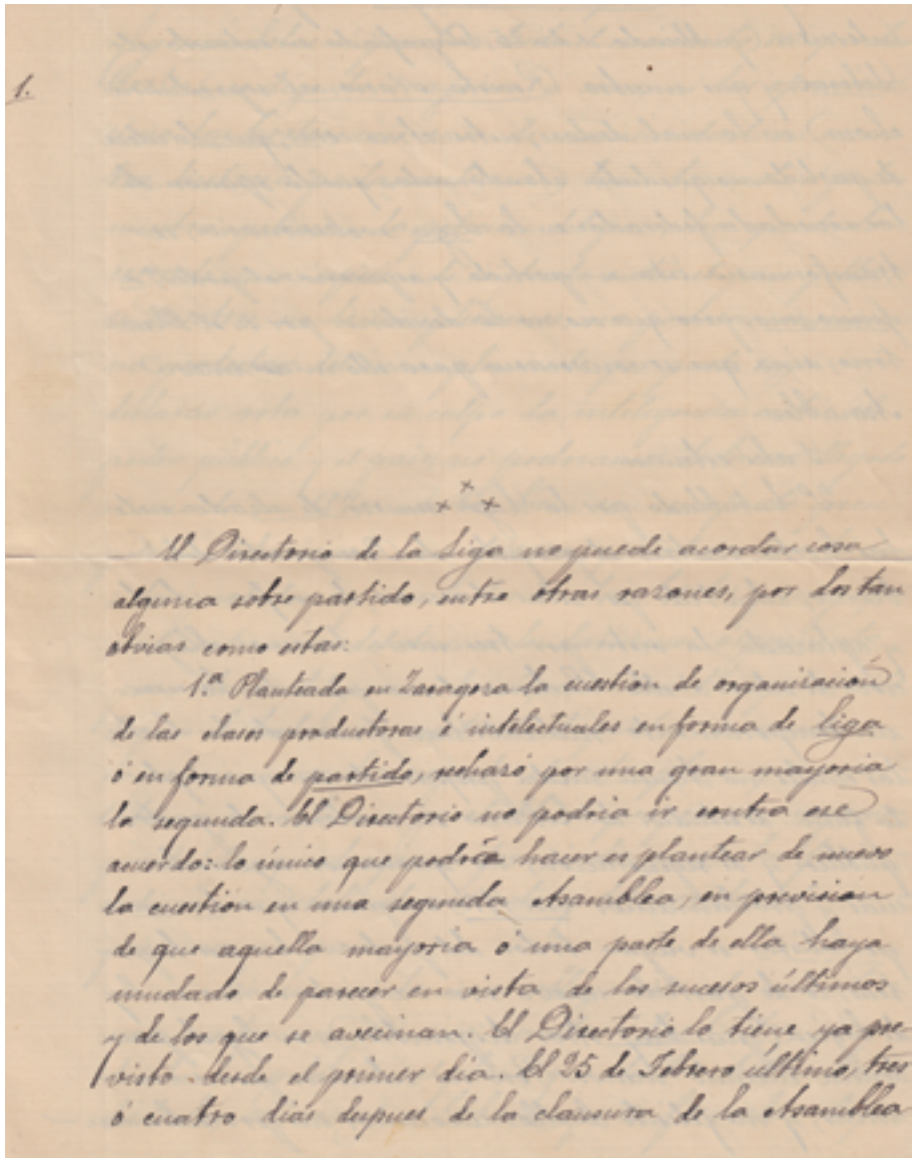 1.
El Directorio de la Liga no puede acordar cosa
alguna sobre partido, entre otras razones, por dos tan
obvias como estas:
1.ª Planteada en Zaragoza la cuestion de organización
de las clases productoras é intelectuales en forma de liga
ó en forma de partido, rechazó por una gran mayoria
lo segundo. El Directorio no podria ir contra ese
acuerdo: lo único que podría hacer es plantear de nuevo
la cuestion en una segunda Asamblea, en prevision
de que aquella mayoria ó una parte de ella haya
mudado de parecer en vista de los sucesos últimos
y de los que se avecinan. El Directorio lo tiene ya pre-
visto desde el primer dia. El 25 de Febrero último, tres
ó cuatro dias despues de la clausura de la Asamblea